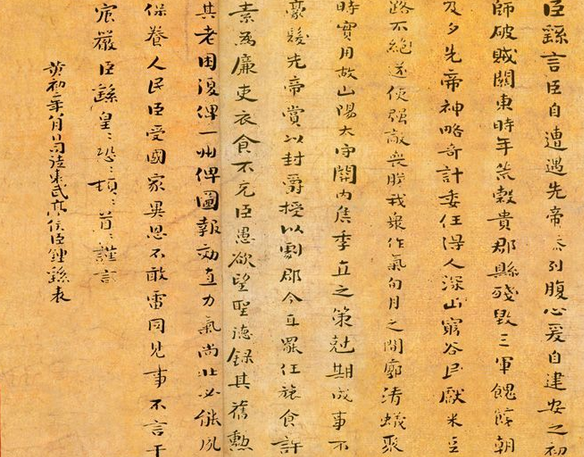 臣繇言臣自遭遇先帝忝列腹心爰自建安之初
師破賊關東時年荒穀貴郡縣殘毀三軍餽饟朝
及夕先帝神略奇計委任得人深山窮谷民獻米豆
路不絕遂使強敵喪膽我衆作氣旬月之間廓清蟻聚
時實用故山陽太守關內侯季直之策剋期成事不
豪髮先帝賞以封爵授以劇郡今直罷任旅食許
素爲廉吏衣食不充臣愚欲望聖德錄其舊勳
其老困復俾一州俾圖報効直力氣尚壯必能夙
保養人民臣受國家異恩不敢雷同見事不言干
宸嚴臣繇皇〻恐〻頓〻首〻謹言
黃初二年八月日司徒東武亭侯臣鍾繇表